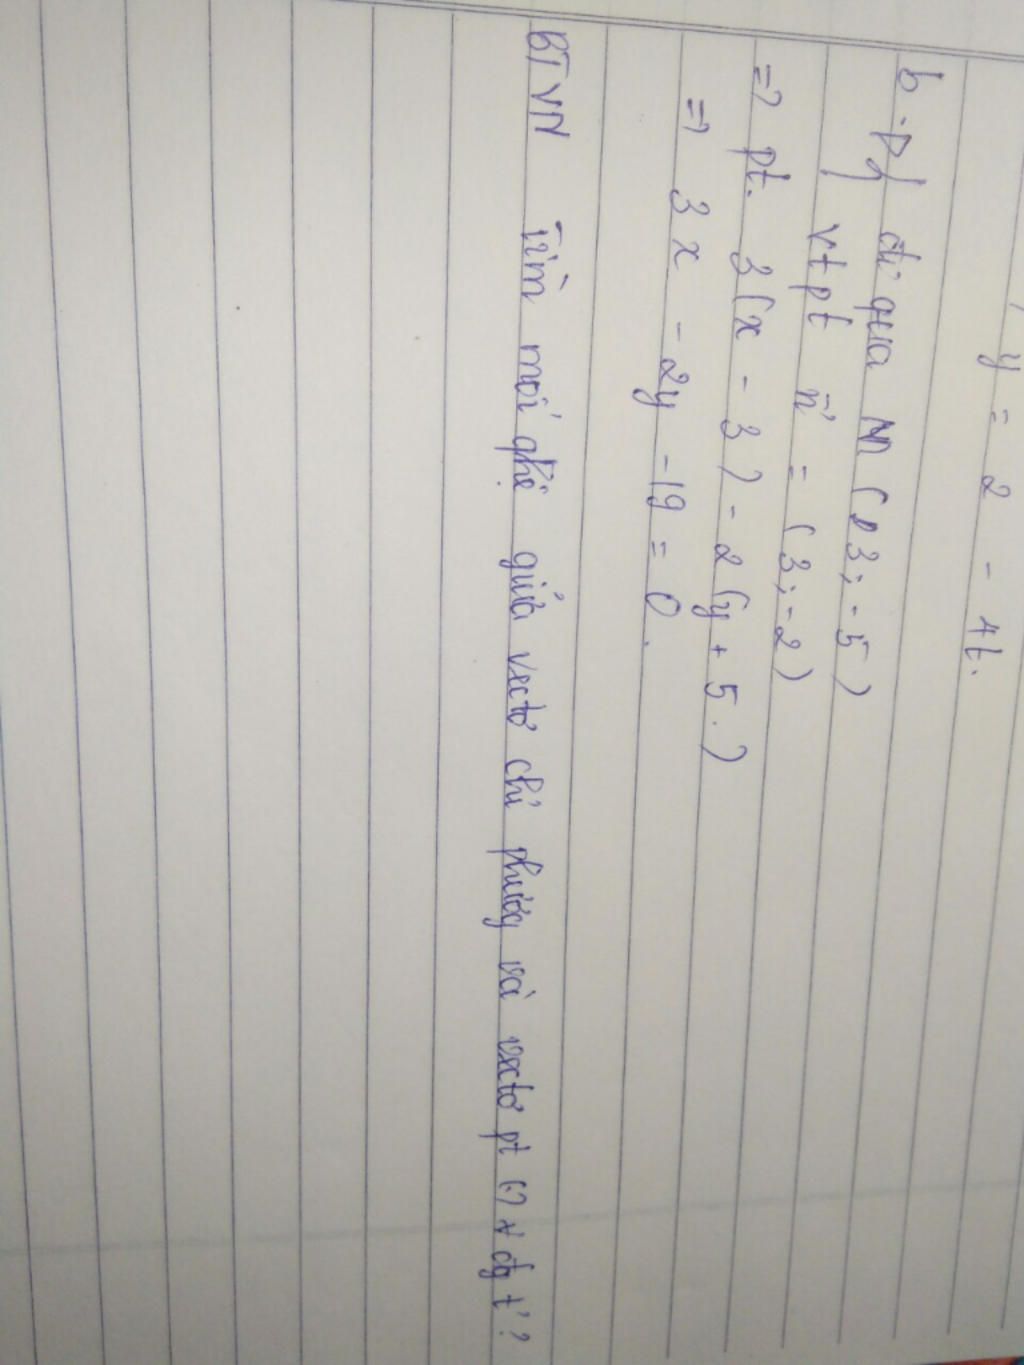 y = 2 - 4t.
b. d đi qua M (3; -5)
vtpt n⃗ = (3; -2)
=> pt. 3(x - 3) - 2(y + 5.)
=> 3x - 2y - 19 = 0.
BTVN Tìm mối qhệ giữa vectơ chỉ phương và vectơ pt đg t'?